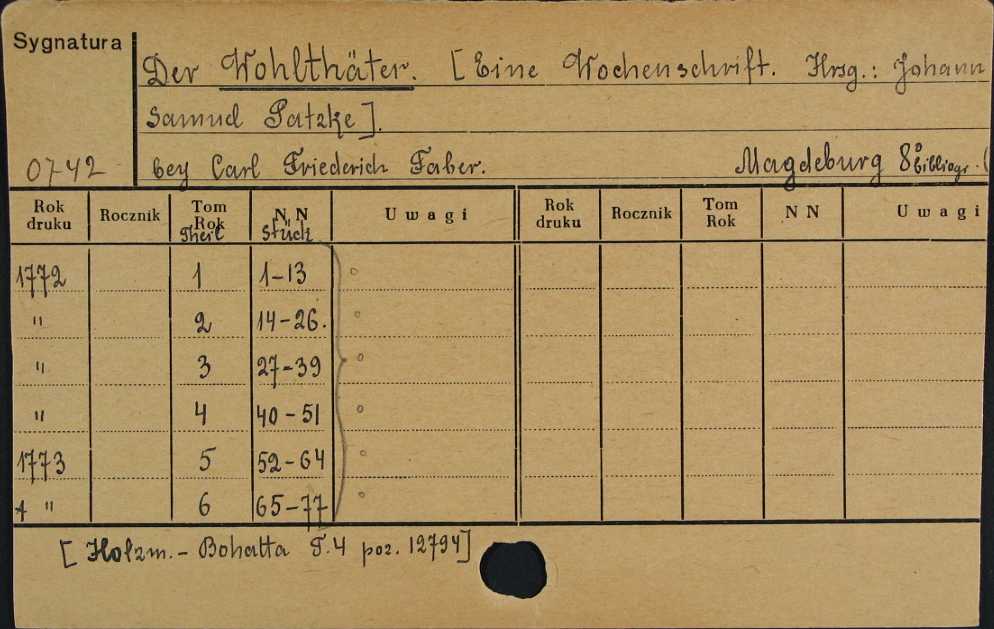 Sygnatura
Der Wohlthäter. [Eine Wochenschrift. Hrsg.: Johann
Samuel Patzke].
0742 bey Carl Friederich Faber. Magdeburg 8° bibliogr. (
Rok druku Rocznik Tom Rok Theil NN Stück Uwagi Rok druku Rocznik Tom Rok NN Uwagi
1772 1 1-13 °
" 2 14-26. °
" 3 27-39 °
" 4 40-51 °
1773 5 52-64 °
" 6 65-77 °
[Holzm.-Bohatta T.4 poz. 12794]